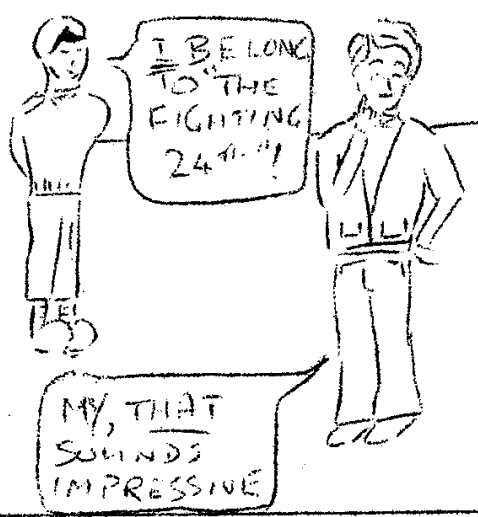 I BELONG
TO "THE
FIGHTING
24th"!
MY, THAT
SOUNDS
IMPRESSIVE